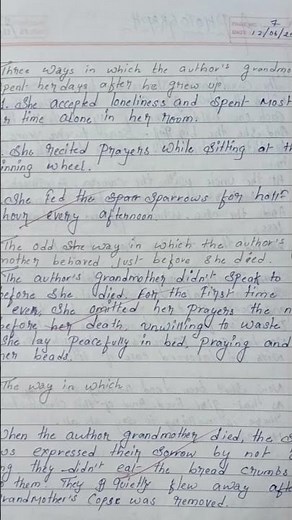 7
12/06/20
Three ways in which the author's grandmo
pent her days after he grew up.
1. She accepted loneliness and spent most
r time alone in her room.
She recited prayers while sitting at th
inning wheel.
She fed the sparr sparrows for half
hour every afternoon.
The odd stre way in which the author's
mother behaved just before she died.
The author's grandmother didn't speak to
before she died. For the first time
even, she omitted her prayers the n
before her death, unwilling to waste
She lay peacefully in bed, praying and
her beads.
The way in which
When the author grandmother died, the
ws expressed their sorrow by not
ng they didn't eat the bread crumbs
them. They quietly flew away afte
randmother's Copse was removed.